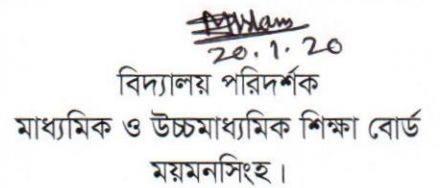 20.1.20
বিদ্যালয় পরিদর্শক
মাধ্যমিক ও উচ্চমাধ্যমিক শিক্ষা বোর্ড
ময়মনসিংহ।